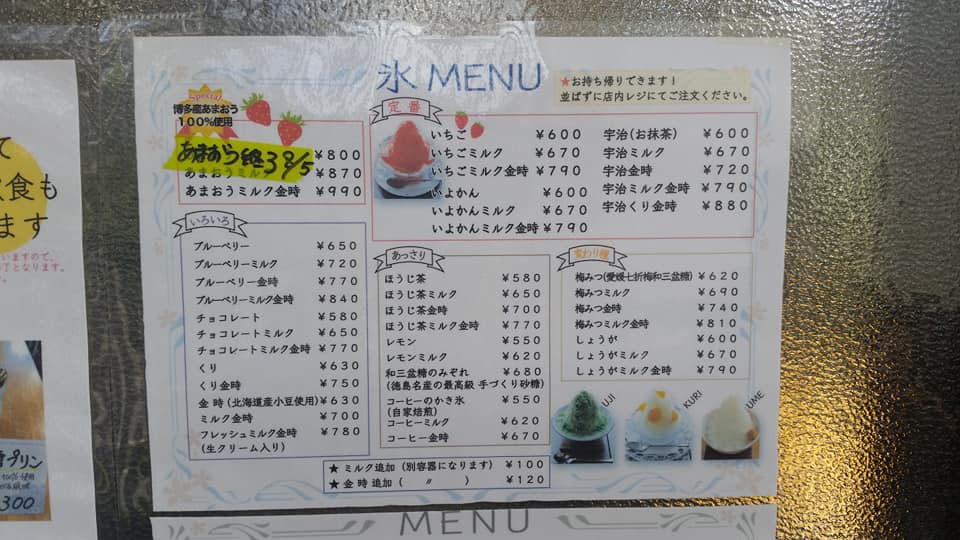 氷 MENU
★お持ち帰りできます！
並ばずに店内レジにてご注文ください。
Special
博多産あまおう
100%使用
¥800
あまおうミルク ¥870
あまおうミルク金時 ¥990
定番
いちご ¥600
いちごミルク ¥670
いちごミルク金時 ¥790
いよかん ¥600
いよかんミルク ¥670
いよかんミルク金時 ¥790
宇治(お抹茶) ¥600
宇治ミルク ¥670
宇治金時 ¥720
宇治ミルク金時 ¥790
宇治くり金時 ¥880
いろいろ
ブルーベリー ¥650
ブルーベリーミルク ¥720
ブルーベリー金時 ¥770
ブルーベリーミルク金時 ¥840
チョコレート ¥580
チョコレートミルク ¥650
チョコレートミルク金時 ¥770
くり ¥630
くり金時 ¥750
金時(北海道産小豆使用) ¥630
ミルク金時 ¥700
フレッシュミルク金時 ¥780
(生クリーム入り)
あっさり
ほうじ茶 ¥580
ほうじ茶ミルク ¥650
ほうじ茶金時 ¥700
ほうじ茶ミルク金時 ¥770
レモン ¥550
レモンミルク ¥620
和三盆糖のみぞれ ¥680
(徳島名産の最高級 手づくり砂糖)
コーヒーのかき氷 ¥550
(自家焙煎)
コーヒーミルク ¥620
コーヒー金時 ¥670
変わり種
梅みつ(愛媛七折梅和三盆糖) ¥620
梅みつミルク ¥690
梅みつ金時 ¥740
梅みつミルク金時 ¥810
しょうが ¥600
しょうがミルク ¥670
しょうがミルク金時 ¥790
UJI
KURI
UME
★ミルク追加(別容器になります) ¥100
★金時追加( 〃 ) ¥120
MENU
て
飲食も
ます
いますので、
了となります。
プリン
300